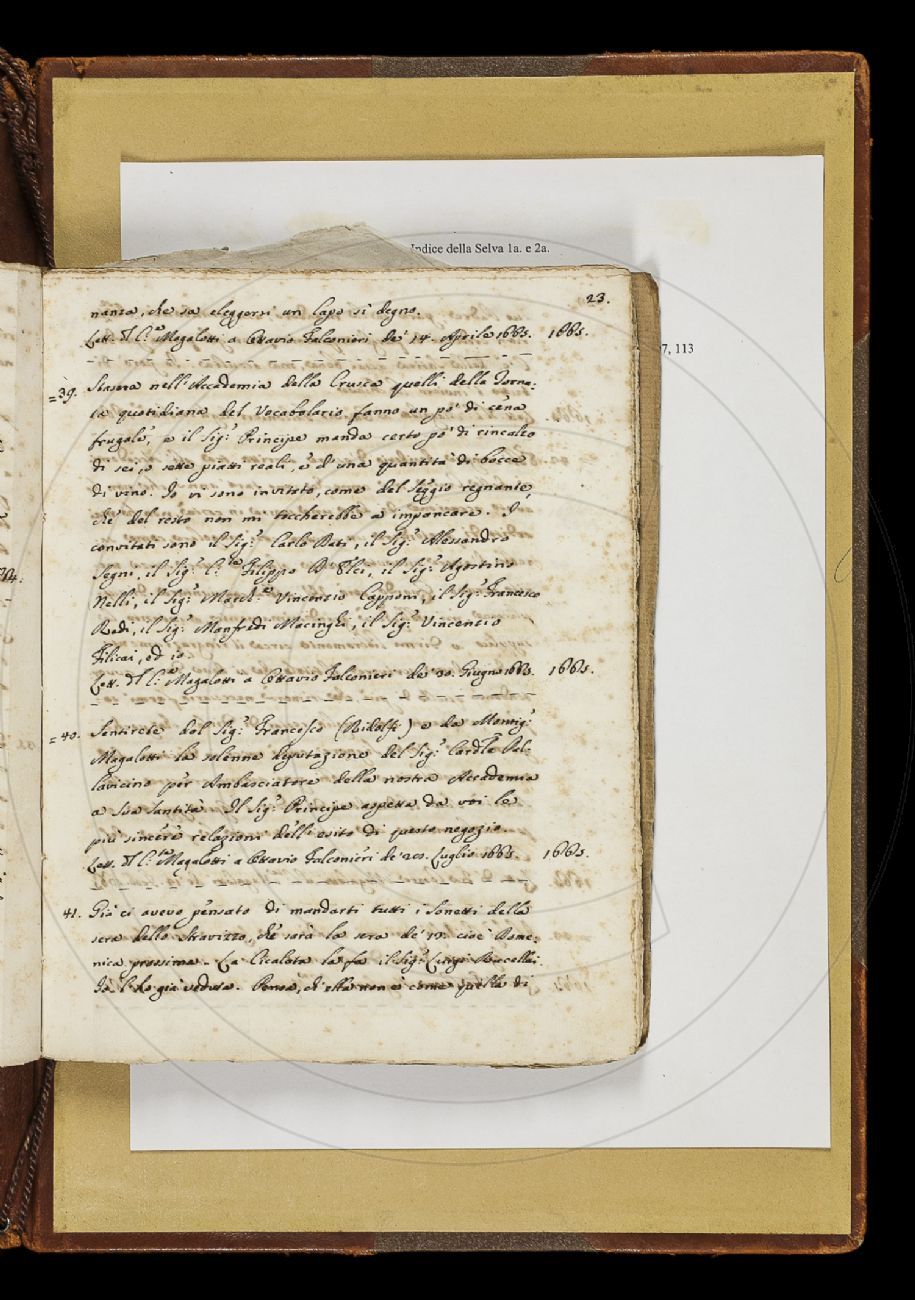 Indice della Selva 1a. e 2a.
7, 113
23.
nanza, che sa eleggersi un Capo sì degno.
Lett. d C.e Magalotti a Ottavio Falconieri de' 14. Aprile 1665. 1665.
=39. Stasera nell'Accademia della Crusca quelli della Torna:
ta quotidiana del Vocabolario fanno un po' di cena
frugale, e il Sig.r Principe manda certo po' di rincalzo
di sei, o sette piatti reali, e d'una quantità di bocce
di vino. Io vi sono invitato, come del Seggio regnante,
chè del resto non mi toccherebbe a impancare. I
convitati sono il Sig.r Carlo Dati, il Sig.r Alessandro
Segni, il Sig.r C.te Filippo D'Elci, il Sig.r Agostino
Nelli, il Sig.r March.se Vincenzio Capponi, il Sig.r Francesco
Redi, il Sig.r Manfredi Macinghi, il Sig.r Vincenzio
Filicai, ed io.
Lett. d C.e Magalotti a Ottavio Falconieri de' 30. Giugno 1665. 1665.
=40. Sentirete dal Sig.r Francesco (Ridolfi) e da Monsig.r
Magalotti la solenne deputazione del Sig.r Cardle Pal-
lavicino per Ambasciatore della nostra Accademia
a Sua Santità. Il Sig.r Principe aspetta da voi le
più sincere relazioni dell'esito di questo negozio.
Lett. d C.te Magalotti a Ottavio Falconieri de' 20. Luglio 1665. 1665.
41. Già ci avevo pensato di mandarti tutti i Sonetti della
sera dello Stravizzo, che sarà la sera de' 13. cioè Dome:
nica prossima. La Cicalata la fa il Sig.r Luigi Rucellai.
Io l'ho già veduta. Pensa, ch'ella non è come quella di